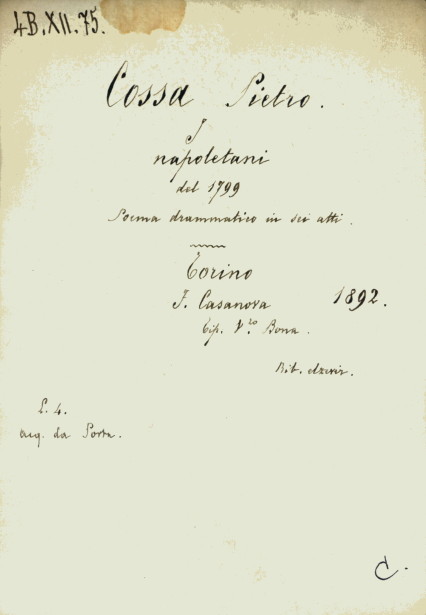 4B.XII.75.
Cossa Pietro.
I
napoletani
del 1799
Poema drammatico in sei atti.
Torino
F. Casanova 1892.
Tip. V.ᶻᵒ Bona.
Bib. elzevir.
L. 4.
acq. da Porta.
C.